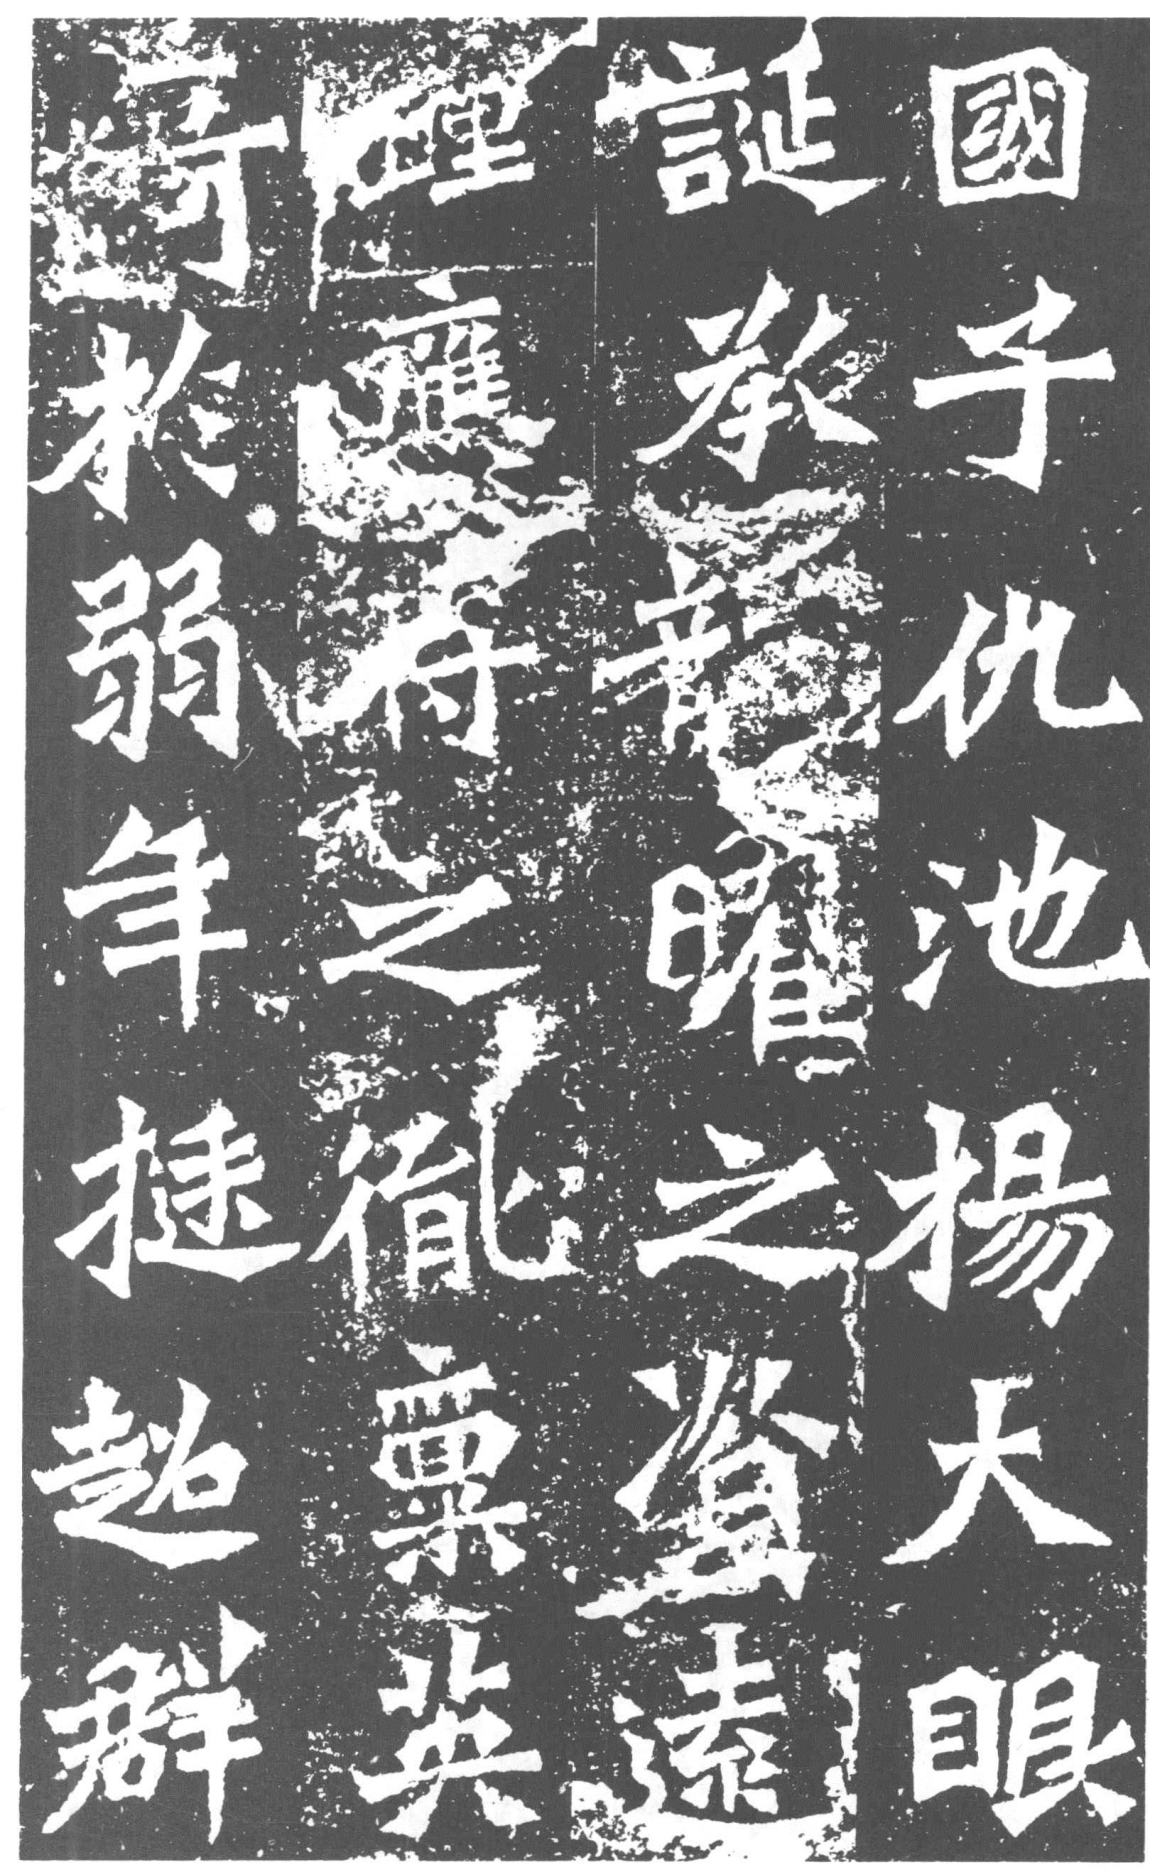 國子仇池楊大眼
誕承龍曜之資遠
踵應符之胤稟英
奇於弱年挺超群